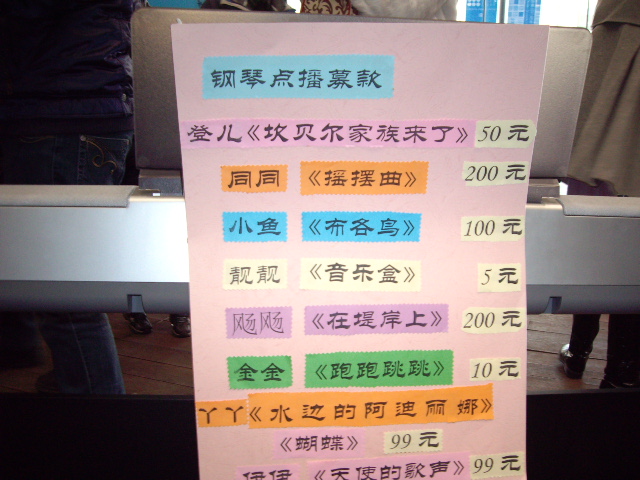 钢琴点播募款
登儿《坎贝尔家族来了》 50 元
同同 《摇摆曲》 200 元
小鱼 《布各鸟》 100 元
靓靓 《音乐盒》 5 元
飏飏 《在堤岸上》 200 元
金金 《跑跑跳跳》 10 元
丫丫《水边的阿迪丽娜》
《蝴蝶》 99 元
伊伊 《天使的歌声》 99 元